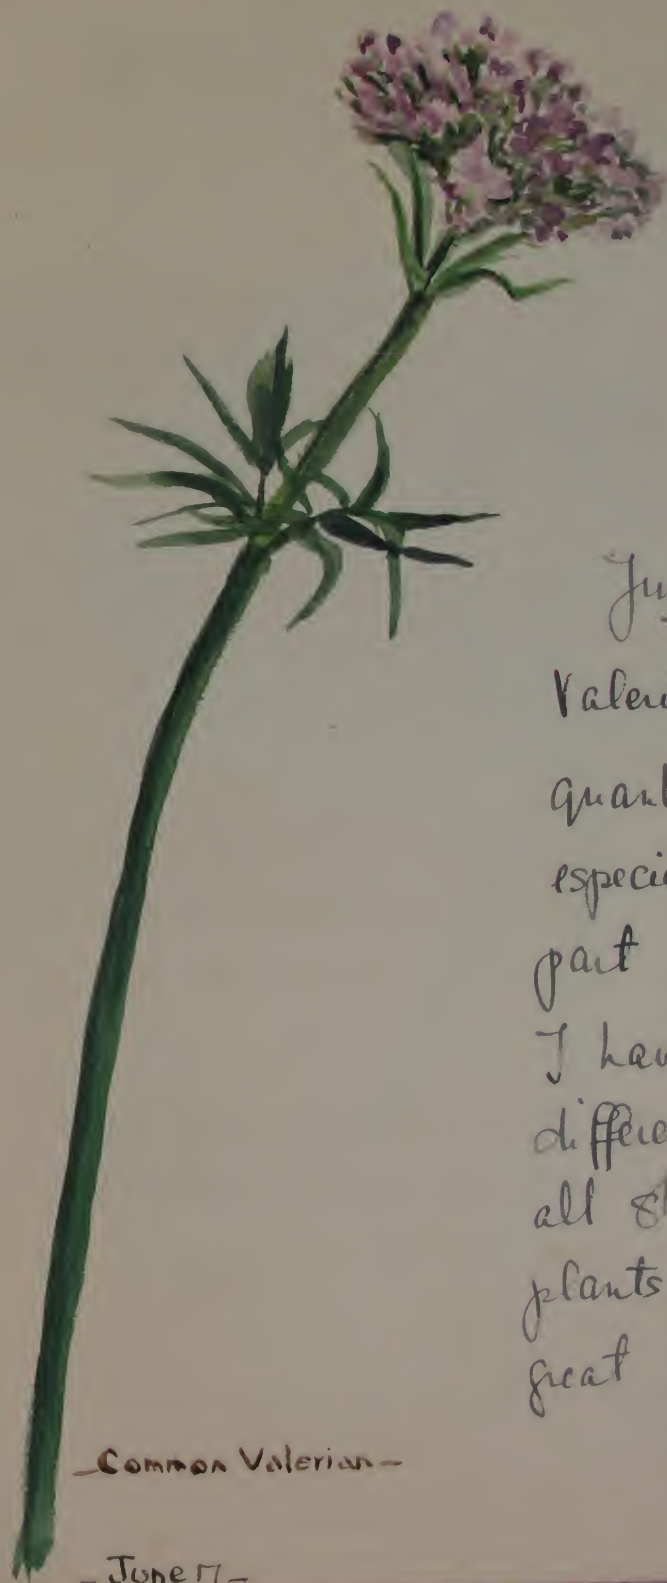 Valer
quant
especi
part
I hav
differe
all
plants
great
-Common Valerian-
-June 17-